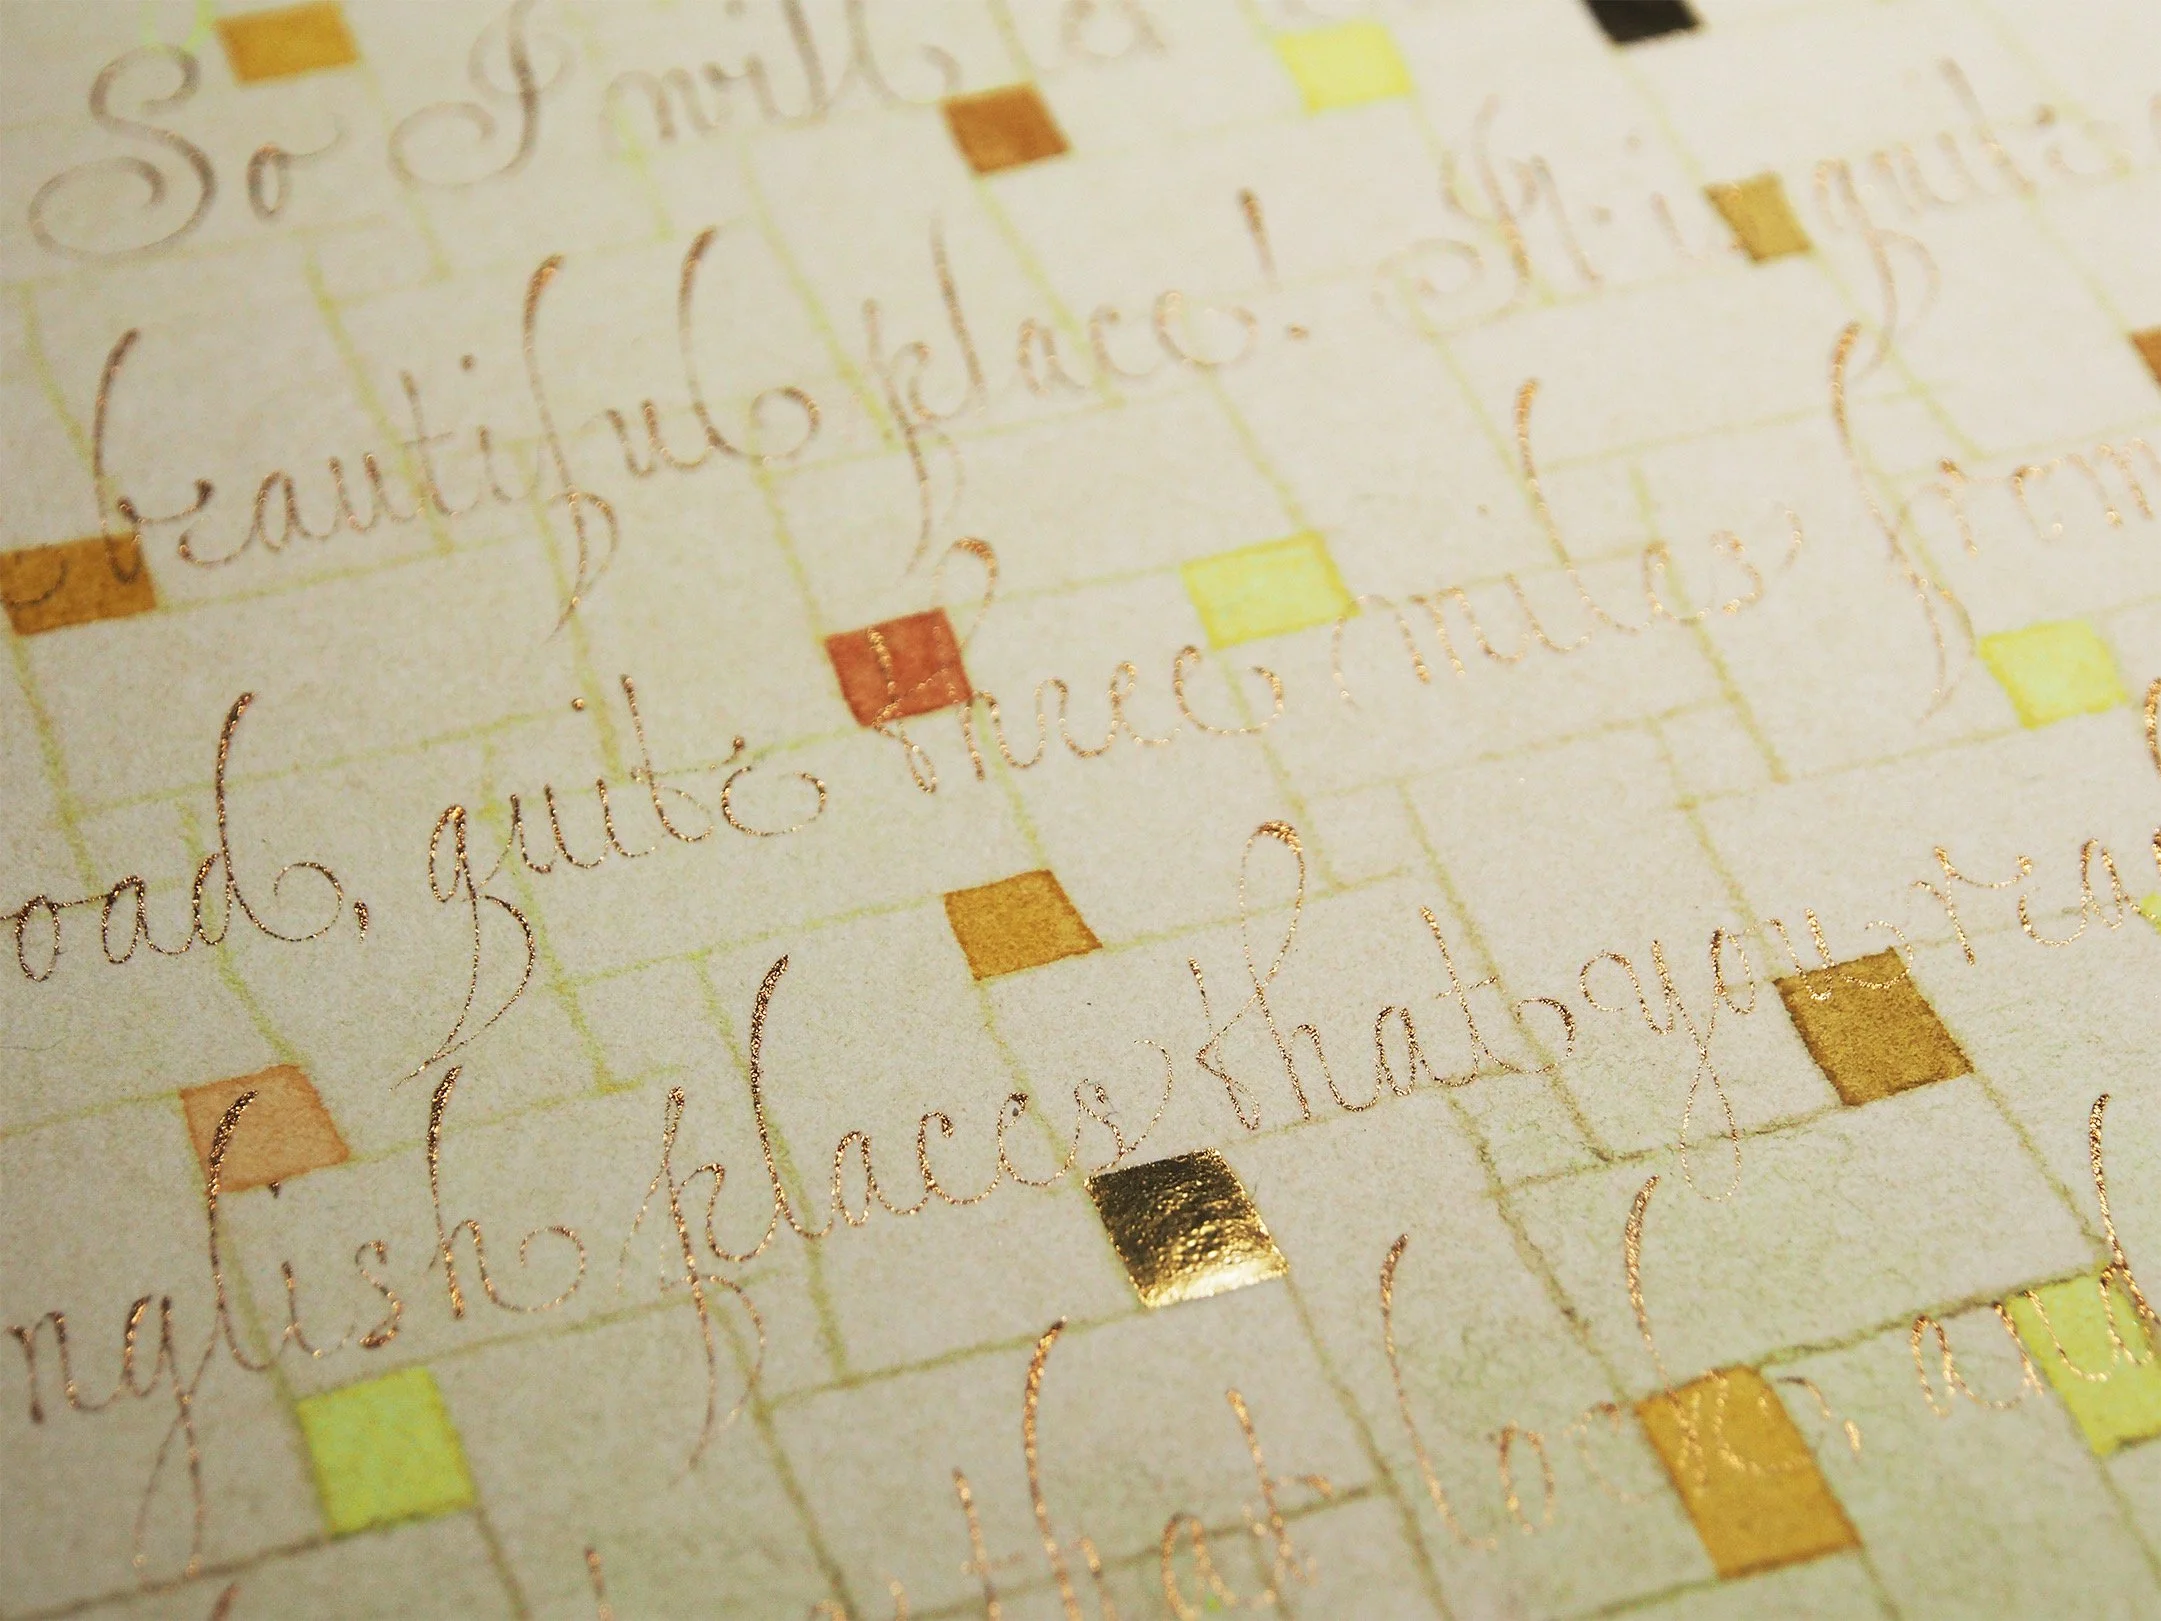 So I will
beautiful place! It is quite
oad, quite three miles from
nglish places that you rea
that locks, and